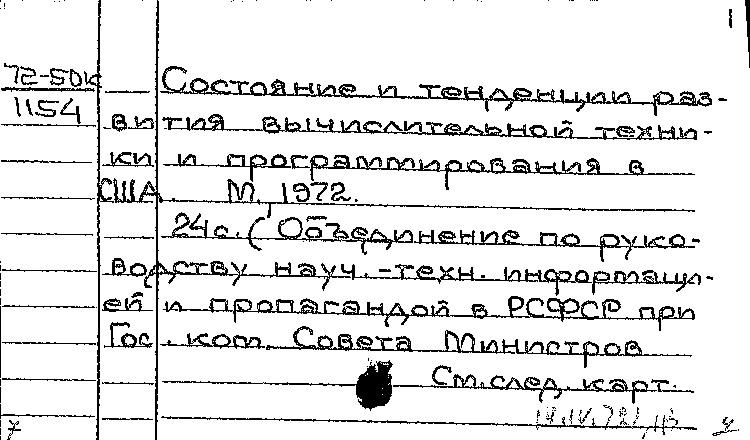 1
72-50к
1154
Состояние и тенденции раз-
вития вычислительной техни-
ки и программирования в
США. М., 1972.
24с. (Объединение по руко-
водству науч.-техн. информаци-
ей и пропагандой в РСФСР при
Гос. ком. Совета Министров
См. след. карт.